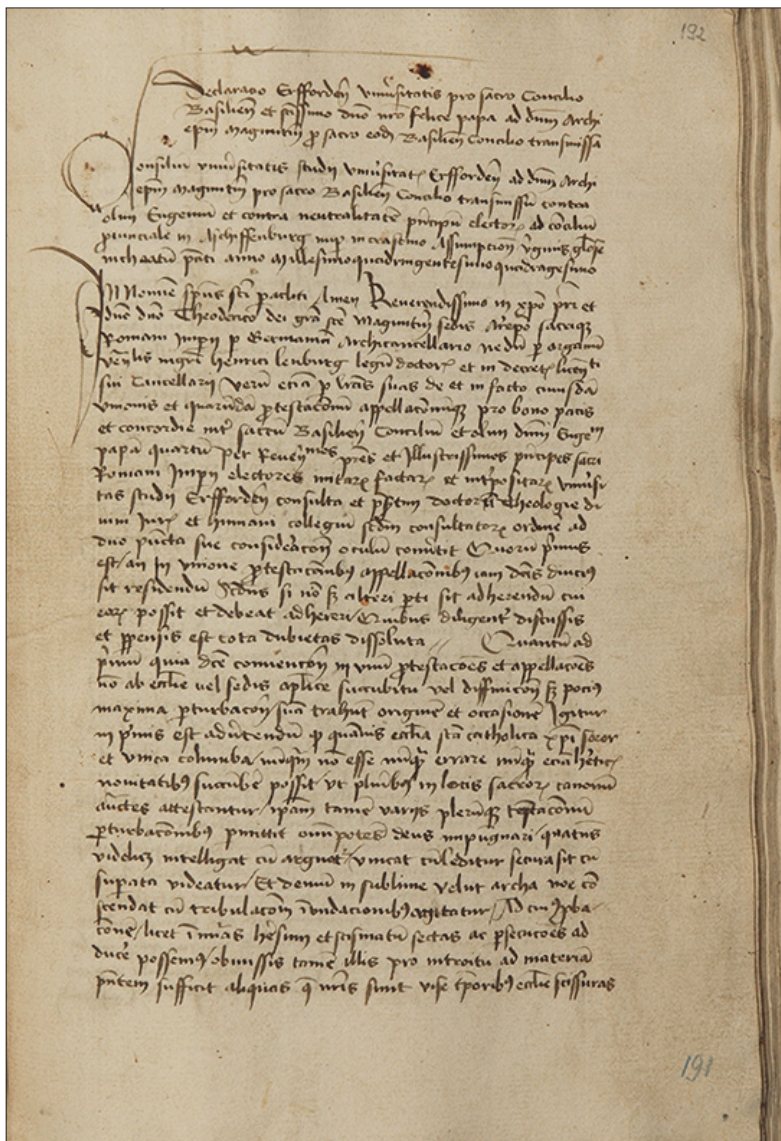 192
Declaracio Erfforden̄ vniu̓sitatis pro sacro Concilio
Basilien̄ et sc̄issimo dn̄o nr̄o felice papa ad dn̄m Archi
ep̄m Magūtin̄ p̄ sacro eod̄ Basilien̄ Concilio transmissa
Consiliū vniu̓sitatis studii vniu̓sitat̄ Erfforden̄ ad dn̄m Archi
ep̄m Magūtin̄ pro sacro Basilien̄ Concilio transmissū contra
olim Eugeniū et contra neutralitatē pͥncipū elector̄ ad cōciliū
ꝓuinciale in Aschiffenburg in crastino Assumpcion̄ v̓gīnis gl̓ose
incheatū pn̄ti anno Millesimoquadringentesimoquadragesimo
In Nomīe sp̄ūs sc̄i pacliti Amen Reuerendissimo in xp̄o pr̄i et
dn̄o dn̄o Theoderico dei gr̄a sc̄e Magūtin̄ sedis Ar̄ep̄o sacriqꝫ
Romani Imp̄ii p̄ Germaniā Archicancellario nedū ꝑ organū
ven̄lis mgr̄i henrici lenburg legū doctor̄ et in decret̄ licen̄ti
sui Cancellarii verū eciā ꝑ lr̄as suas de et in facto cuiusdā
vnionis et quarūdā ꝓtestacōnū appellacōnūqꝫ pro bono pacis
et concordie int̓ sacrū Basilien̄ Conciliū et olim dn̄m Euge
papā quartū per Reuen̄mos pr̄es et Illustrissimos pͥncipes sacri
Romani Imp̄ii electores initar̄ factar̄ et int̓positar̄ vniu̓si
tas studii Erfforden̄ consulta et doctor̄ Theologie di
uini Iur̄ et humani collegiū scd̄m consultator̄ ordine ad
duo pūcta sue considēacōn̄ oculū conu̓tit Quorū pͥmus
est an in vnione ꝓtestacōnibꝰ appellacōnibꝰ iam dc̄is diuciꝰ
sit residendū Scd̄us si nō sꝫ alteri ꝑti sit adherendū cui
eor̄ possit et debeat adhereri Quibus diligent̓ discussis
et ꝑpensis est tota dubietas dissoluta // Quantū ad
pͥmū quia dc̄e conuencōn̄ in vnū ꝓtestacōes et appellacōes
nō ab ecc̄lie vel sedis ap̄lice succubitu vel diffinicōn̄ sꝫ pociꝰ
maxima ꝑturbacōn̄ suā trahūt originē et occasionē Igitur
in pͥmis est adu̓tendū ꝙ quāuis ecc̄lia sc̄a catholica xp̄i soror
et vnica columba nūqͥm nō esse nūqͣ errare nūqͣ eciā he̓tic̄
nouitatibꝰ succūbe̓ possit vt pluribꝰ in locis sacror̄ canonū
auc̄tes attestantur ip̄am tamē variis plerūqꝫ tēptacōnū
ꝑturbacōnibꝰ p̄mittit om̄ipotēs deus impugnari quatinꝰ
videlicꝫ intelligat cū arguit̓ vincat cū leditur secura sit cū
supata videatur Et demū in sublime velut archa noe cō
scendat cū tribulacōm̄ īundacionibꝰ agitatur Ad cuiꝰ ꝓba
cōnē licet in̄u̓as he̓sum et scismatū sectas ac ꝑsecucōes ad
duce̓ possemꝰ obmissis tamē illis pro introitu ad materiā
pn̄tem sufficit aliquas q̄ nr̄is sunt vise tp̄oribꝰ ecc̄lie scissuras
191